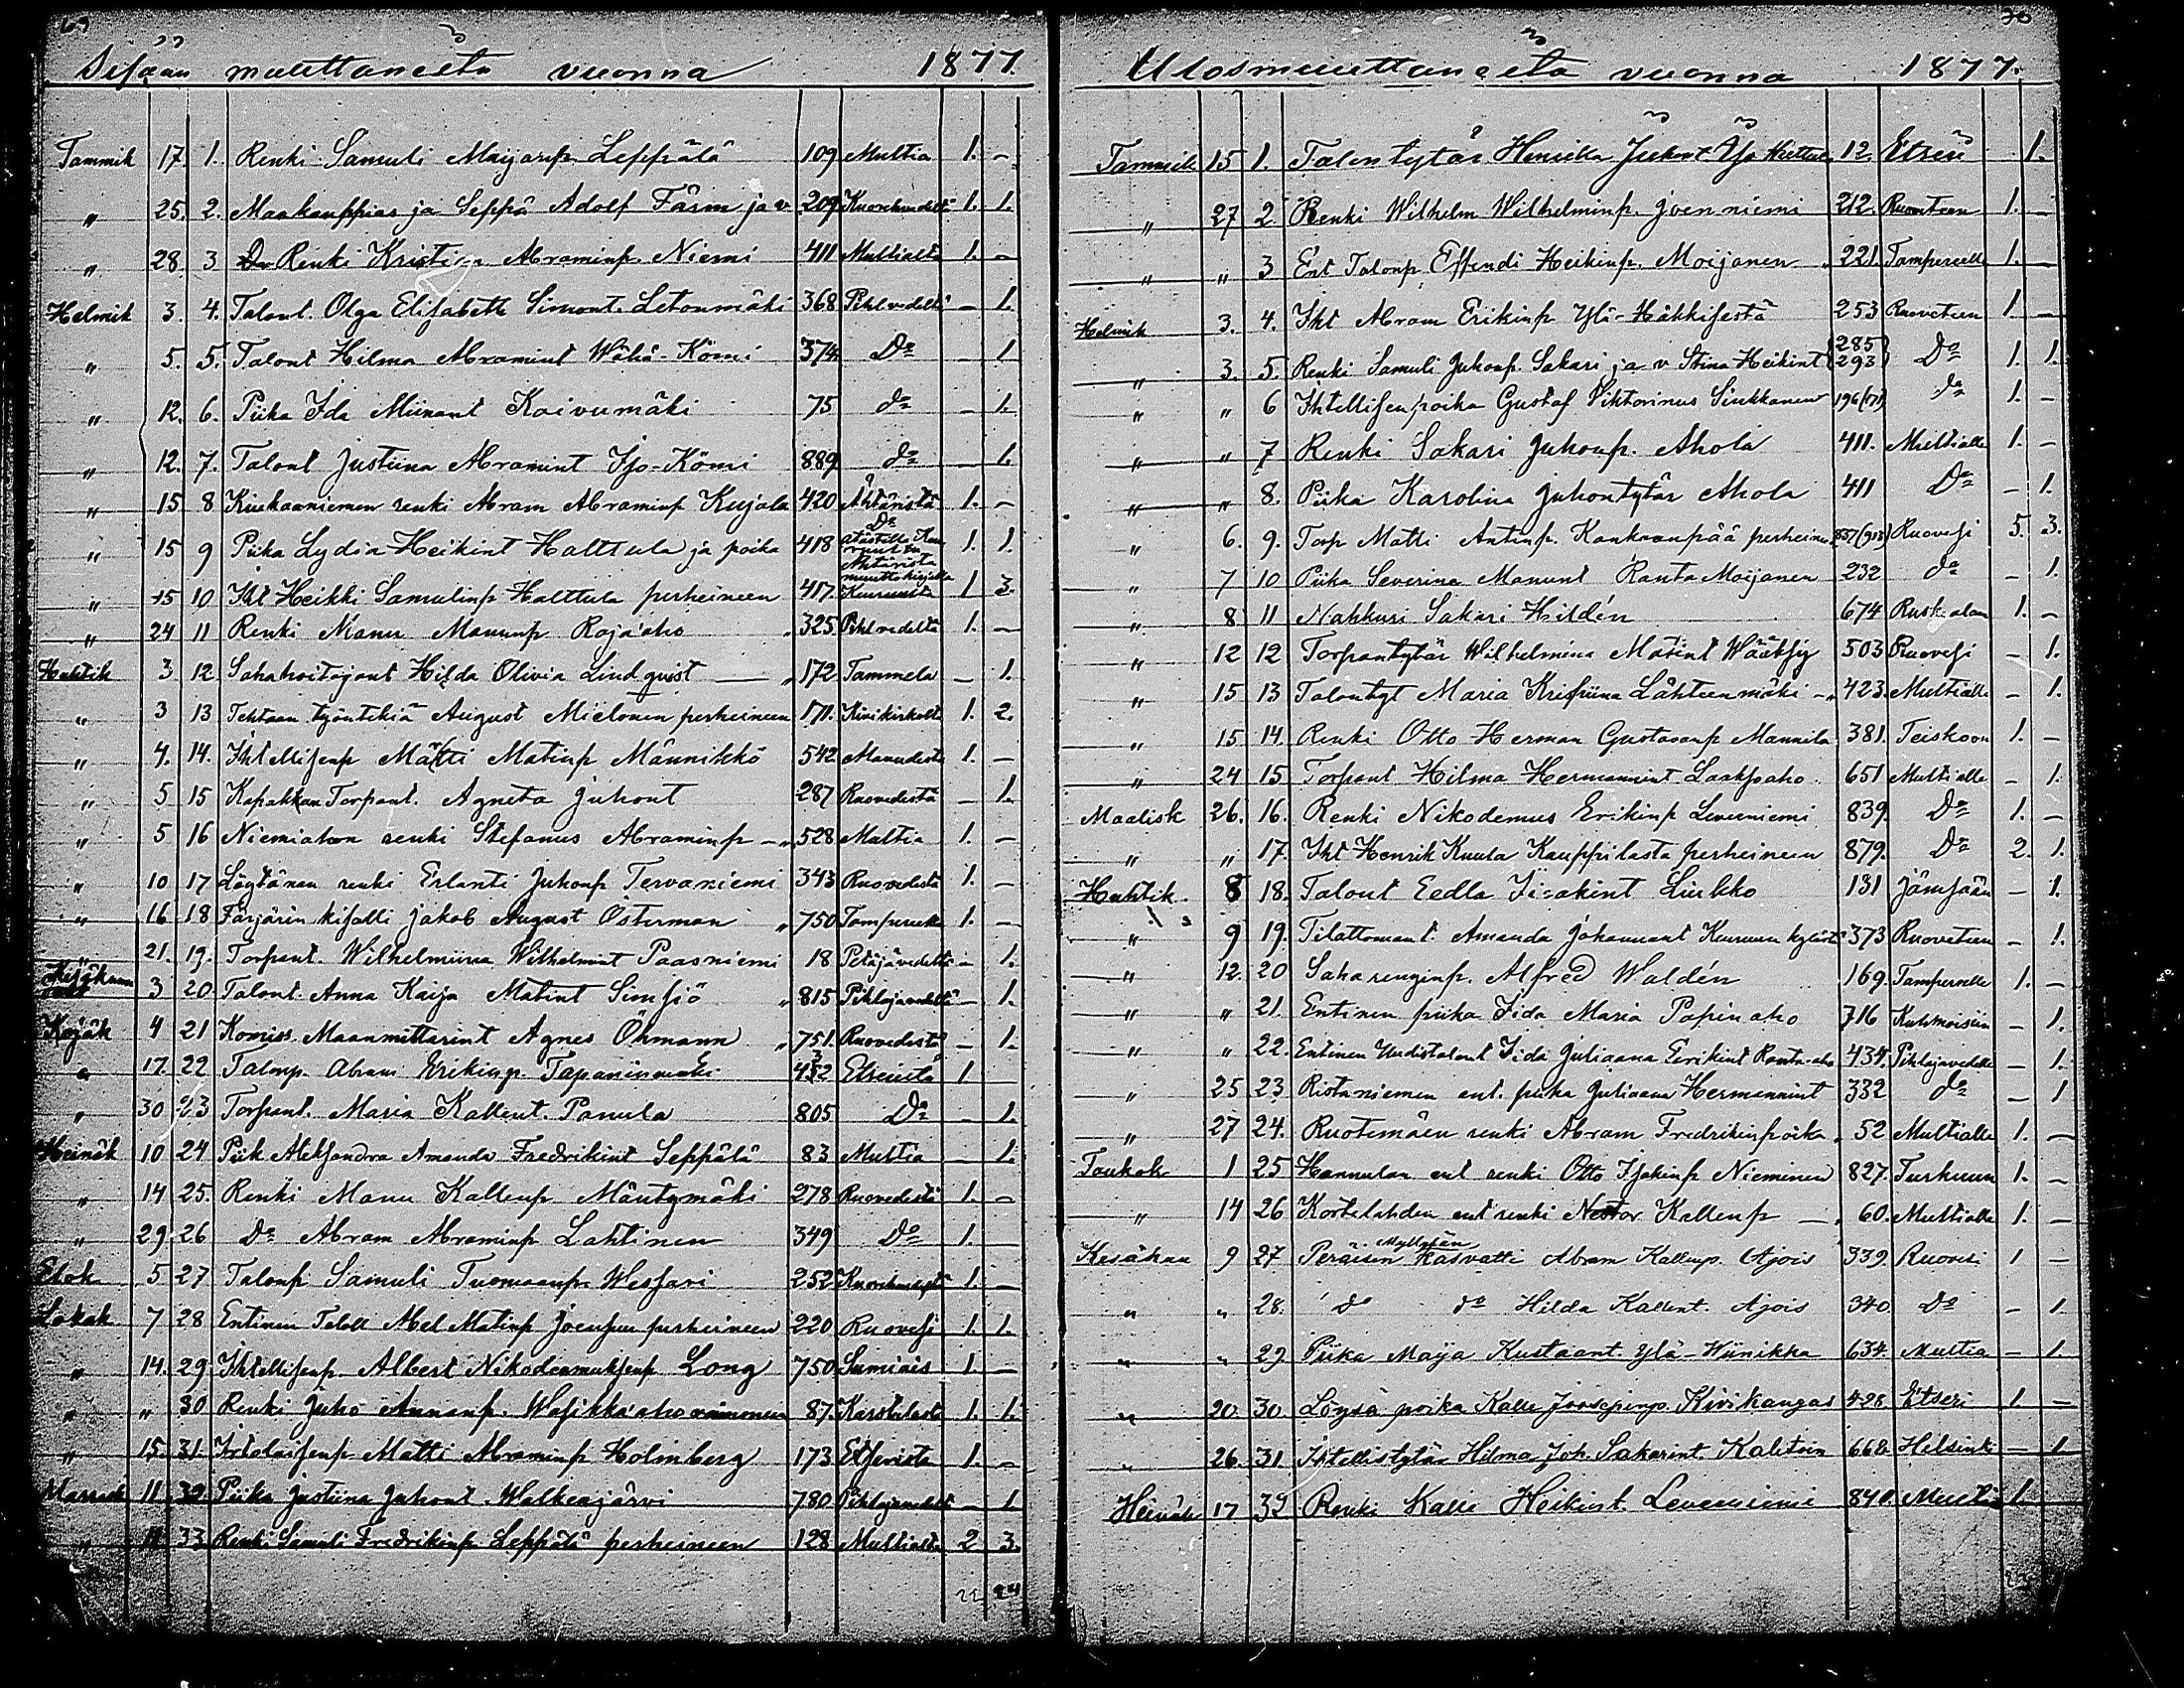 69
Sisään muuttaneita vuonna 1877.
Tammik 17. 1. Renki Samuli Maijanp. Leppälä 109 Multia 1. -
" 25. 2. Maakauppias ja Seppä Adolf Färm ja v. 209 1. 1.
" 28. 3 Renki Abraminp. Niemi 411 Multialta 1. -
Helmik 3. 4. Talont. Olga Elisabeth Simont. Letonmäki 368 Pihlvedeltä - 1.
" 5. 5. Talont Hilma Abramint Wähä-Kömi 374. Do - 1
" 12. 6. Piika Ida Miinant Koivumäki 75 do - 1.
" 12. 7. Talont Justiina Abramint Iso-Kömi 889 do - 1.
" 15 8 Kiukaaniemen renki Abram Abraminp Kujala 420 Ähtäristä 1. -
" 15 9 Piika Lydia Heikint Halttula ja poika 418 Do 1. 1.
Ähtäristä muuttokirjalla
" 15 10 Iht Heikki Samulinp Halttula perheineen 417. Keuruulta 1 3.
" 24 11 Renki Manu Manunp Roja'aho " 325 Pihlvedeltä 1. -
Huhtik 3 12 Sahahoitajant Hilda Olivia Lindqvist " 172 Tammela - 1.
" 3 13 Tehtaan työntekiä August Mielonen perheineen 171. Kivikirkolta 1. 2.
" 4. 14. Ihtellisenp Matti Matinp Männikkö 542 1. -
" 5 15 Torpant. Agneta Juhont 287 Ruovedestä - 1.
" 5 16 Niemiahon renki Stefanus Abraminp " 528 Multia 1. -
" 10 17 Löytänen renki Erlanti Juhonp Tervaniemi 343 Ruovedestä 1. -
" 16 18 Färjärin kisälli Jakob August Österman " 750 Tampereelta 1. -
" 21. 19. Torpant. Wilhelmiina Wilhelmint Paasniemi 18 Petäjävedeltä - 1.
Kesäkuu 3 20. Talont. Anna Kaisa Matint Simsiö " 815 Pihlajavedeltä - 1.
Kesäk 4 21 Komiss. Maanmittarint Agnes Öhmann " 751. Ruovedestä - 1.
" 17 22 Talonp. Abram Erikinp Tapaninmäki 432 Etseristä 1
" 30 23 Torpant. Maria Kallent. Panula 805 Do - 1.
Heinäk 10 24 Piik Aleksandra Amanda Fredrikint Seppälä 83 Multia - 1.
" 14 25. Renki Manu Kallenp Mäntymäki 278 Ruovedestä 1. -
" 29. 26 Do Abram Abraminp Lahtinen 349 Do 1.
Elok 5 27 Talonp Samuli Tuomaanp. Wessari 252 1. -
Lokak 7 28 Entinen Taloll Abel Matinp Joensuu perheineen 220 Ruovesi 1. 1.
" 14. 29 Ihtellisenp. Albert Nikodemuksenp Long 750 Sumiais 1. -
" " 30 Renki Juho Annanp. Wasikka'aho vaimoneen 87. Karstulasta 1. 1.
" 15. 31. Matti Abraminp Holmberg 173 Etseristä 1. -
Marrask 11 32. Piika Justiina Juhont Walkeajärvi 780 Pihlajavedeltä - 1.
" 11. 33. Renki Samuli Fredrikinp Leppälä perheineen 128 Multialta 2 3.
22 24
70
Ulosmuuttaneita vuonna 1877.
Tammik 15 1. Talon tytär Henrikka Juhont 12. Etseri 1.
" 27 2 Renki Wilhelm Wilhelminp. Joenniemi 212. Ruoveteen 1. -
" " 3 Ent Talonp Effendi Heikinp. Moijanen " 221. Tampereelle 1. -
Helmik 3. 4. Iht Abram Erikinp Ylä-Häkkisestä 253 Ruoveteen 1. -
" 3. 5. Renki Samuli Juhonp. Sakari ja v Stina Heikint {285 293} Do 1. 1.
" " 6 Ihtellisen poika Gustaf Viktorinus Siukkanen 196(171) do 1. -
" " 7 Renki Sakari Juhonp. Ahola 411. Multialle 1. -
" " 8. Piika Karolina Juhontytär Ahola 411 Do - 1.
" 6. 9. Torp Matti Antinp. Kankaanpää perheine. 857(913) Ruovesi 5. 3.
" 7 10 Piika Severina Manunt Ranta Moijanen 232 do - 1.
" 8 11 Nahkuri Sakari Hildén 674 Ruskealan 1. -
" 12 12 Torpantytär Wilhelmina Matint Wääksy 503 Ruovesi - 1.
" 15 13 Talontyt Maria Kristiina Lähteenmäki " 423. Multialle - 1.
" 15 14. Renki Otto Herman Gustavanp Mannila 381. Teiskoon 1. -
" 24 15 Torpant Hilma Hermannint Laaksoaho 651 Multialle - 1.
Maalisk 26. 16. Renki Nikodemus Erikinp Leveeniemi 839. Do 1. -
" " 17. Iht Henrik Kuula Kauppilasta perheineen 879. Do 2. 1.
Huhtik. 8 18. Talont Eedla Iisakint Liukko 131 Jämsään - 1.
" 9 19. Tilattomant. Amanda Johannant Keuruun kylästä 373 Ruoveteen - 1.
" 12. 20 Saharenginp. Alfred Waldén 169. Tampereelle 1. -
" " 21. Entinen piika Iida Maria Papinaho 716 Kuhmoisiin - 1.
" " 22. Entinen Uudistalont Iida Juliaana Eerikint Ranta-aho 434. Pihlajavedelle - 1.
" 25 23 Ristaniemen ent. piika Juliaana Hermannint 332 do - 1
" 27 24. Ruotsmäen renki Abram Fredrikinpoika " 52 Multialle 1. -
Toukok 1 25 Hannulan ent renki Otto Isakinp Nieminen 827. Turkuun 1. -
" 14 26 Kortelahden ent renki Nestor Kallenp " 60. Multialle 1. -
Kesäkuu 9 27 Peräisen Kasvatti Abram Kallenp. Ajois 339. Ruovesi 1 -
" " 28. do do Hilda Kallent. Ajois 340. Do - 1.
" " 29. Piika Maija Kustaant. Ylä-Hiinikka 634. Multia - 1
" 20. 30. Loysä poika Kalle Joosepinp. Kivikangas 428. Etseri 1 -
" 26. 31. Itsellistytär Hilma Joh. Sakarint. 668. Helsinki - 1
Heinäk 17 32. Renki Kalle Heikinp. Leveeniemi 840. Multia 1.